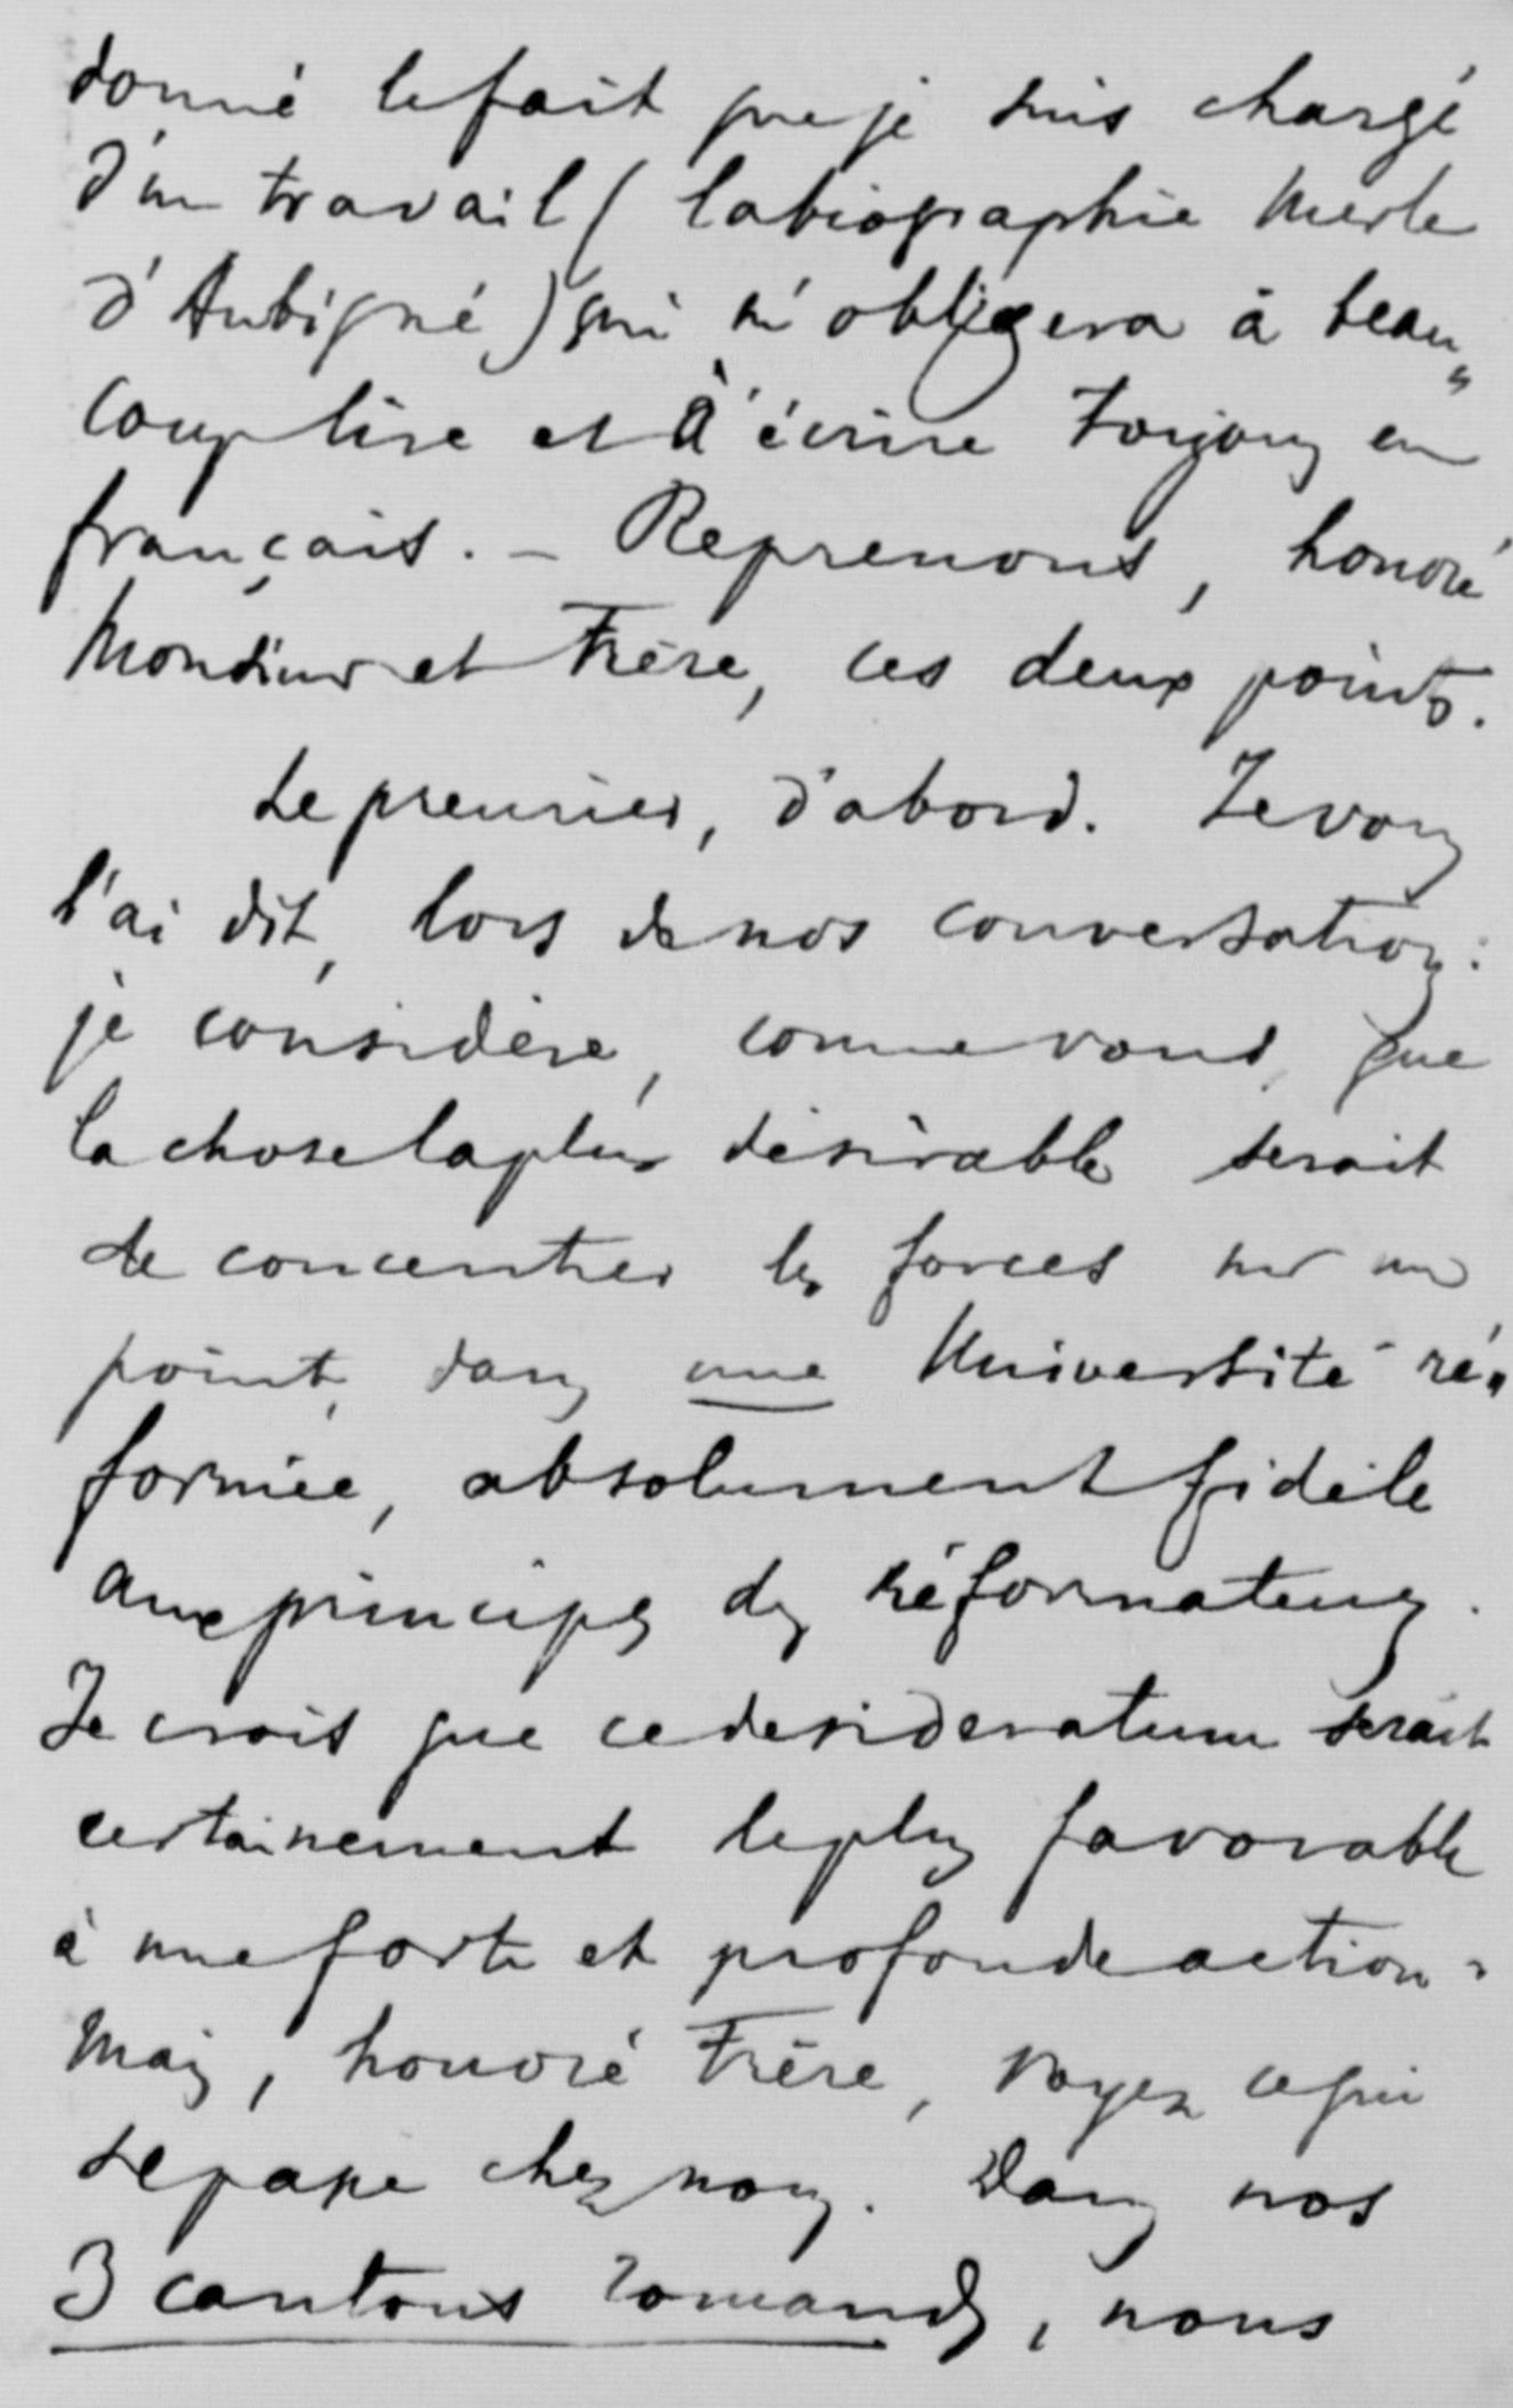 donné le fait que je suis chargé
d'un travail (la biographie Merle
d'Aubigné) qui m'obligera à beau„
coup lire et à écrire toujours en
français. – Reprenons, honoré
Monsieur et Frère, ces deux points.
Le premier, d'abord. Je vous
l'ai dit, lors de nos conversations:
je considère, comme vous, que
la chose la plus désirable serait
de concentrer les forces sur un
point, dans une Université ré„
formée, absolument fidèle
aux principes des réformateurs.
Je crois que ce desideratum serait
certainement le plus favorable
à une forte et profonde action.
Mais, honoré Frère, voyez ce qui
se passe chez nous. Dans nos
3 cantons romands, nous